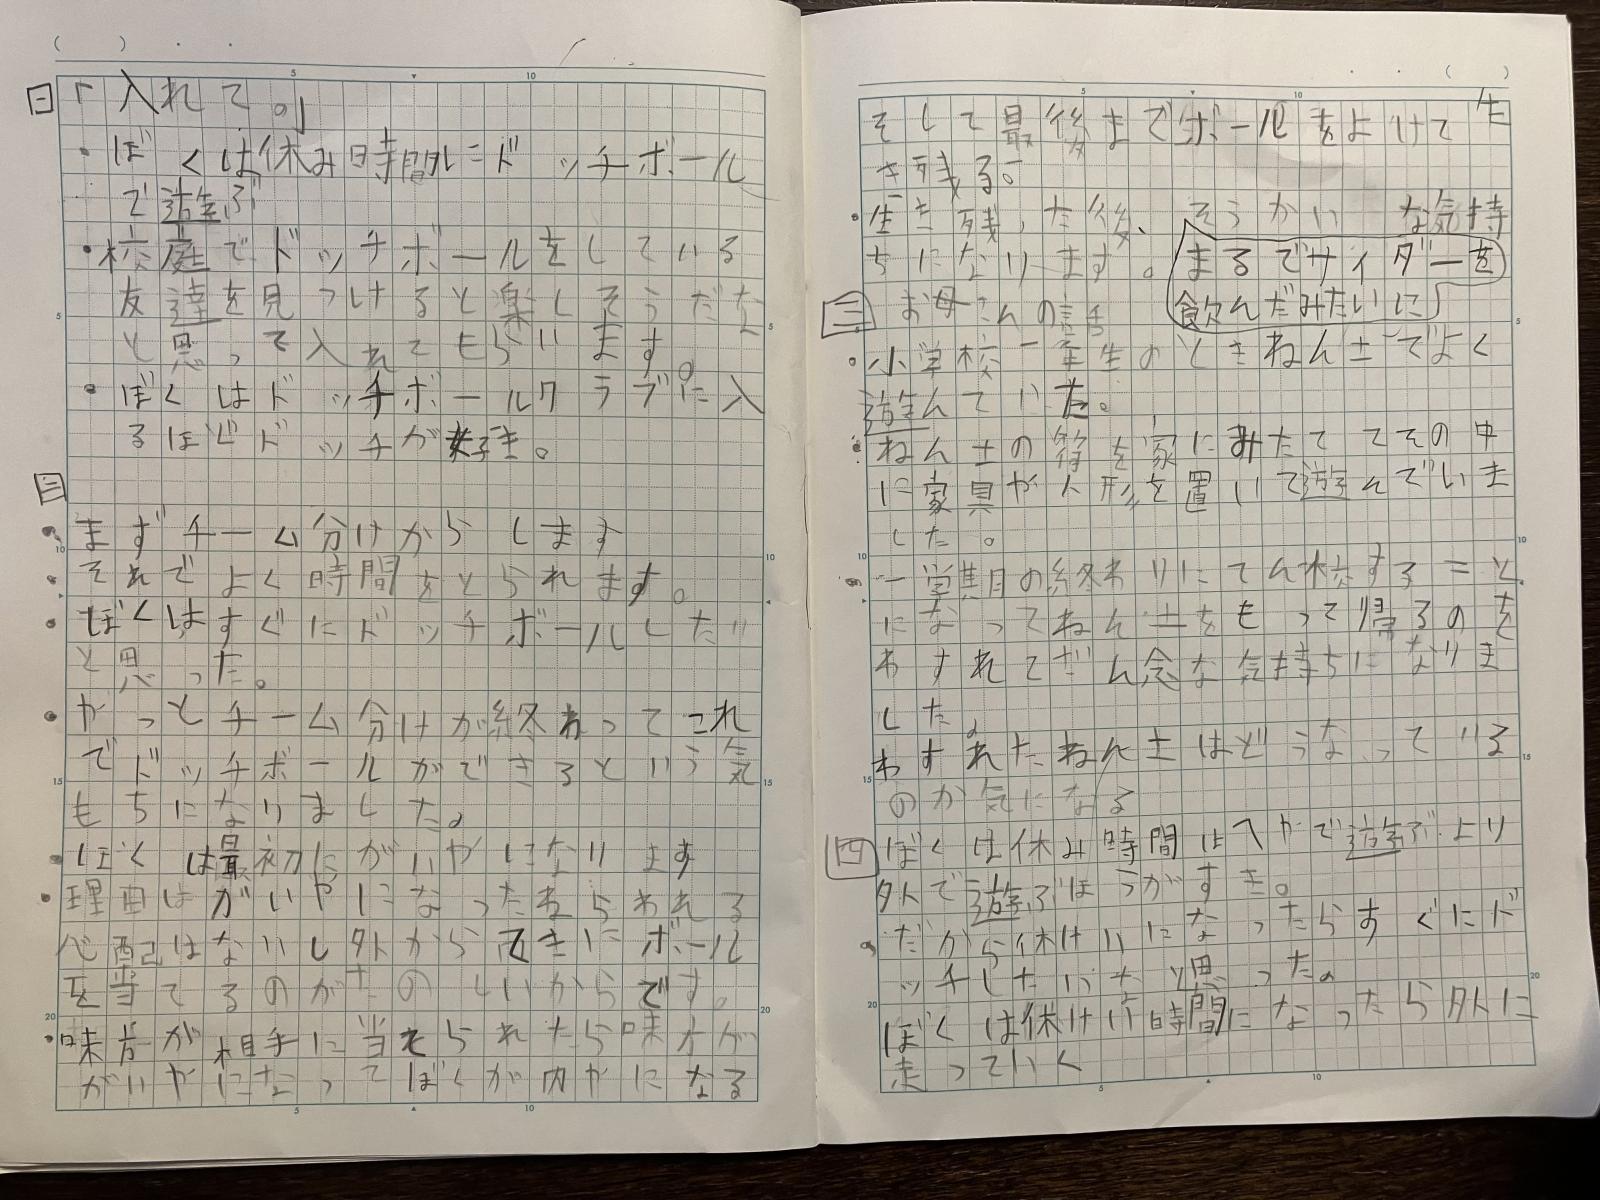 一
「入れて。」
・ぼくは休み時間にドッチボール
で遊ぶ
・校庭でドッチボールをしている
友達を見つけると楽しそうだな
と思って入れてもらいます。
・ぼくはドッチボールクラブに入
るほどドッチが好き。
二
・まずチーム分けからします
・それでよく時間をとられます。
・ぼくはすぐにドッチボールしたい
と思った。
・やっとチーム分けが終わってこれ
でドッチボールができるという気
もちになりました。
・ぼくは最初にがいやになります
・理由はがいやになったねらわれる
心配はないし外からてきにボール
を当てるのがたのしいからです。
・味方が相手に当てられたら味方が
がいやになってぼくが内やになる
そして最後までボールをよけて生
き残る。
・生き残った後、そうかいな気持
ちになります。
まるでサイダーを
飲んだみたいに
三 お母さんの話
・小学校一年生のときねん土でよく
遊んでいた。
・ねん土の箱を家にみたててその中
に家具や人形を置いて遊んでいま
した。
・一学期の終わりにてん校すること
になってねん土をもって帰るのを
わすれてざん念な気持ちになりま
した。
わすれたねん土はどうなっている
のか気になる
四 ぼくは休み時間はへやで遊ぶより
外で遊ぶほうがすき。
・だから休けいになったらすぐにド
ッチしたいなと思った。
ぼくは休けい時間になったら外に
走っていく